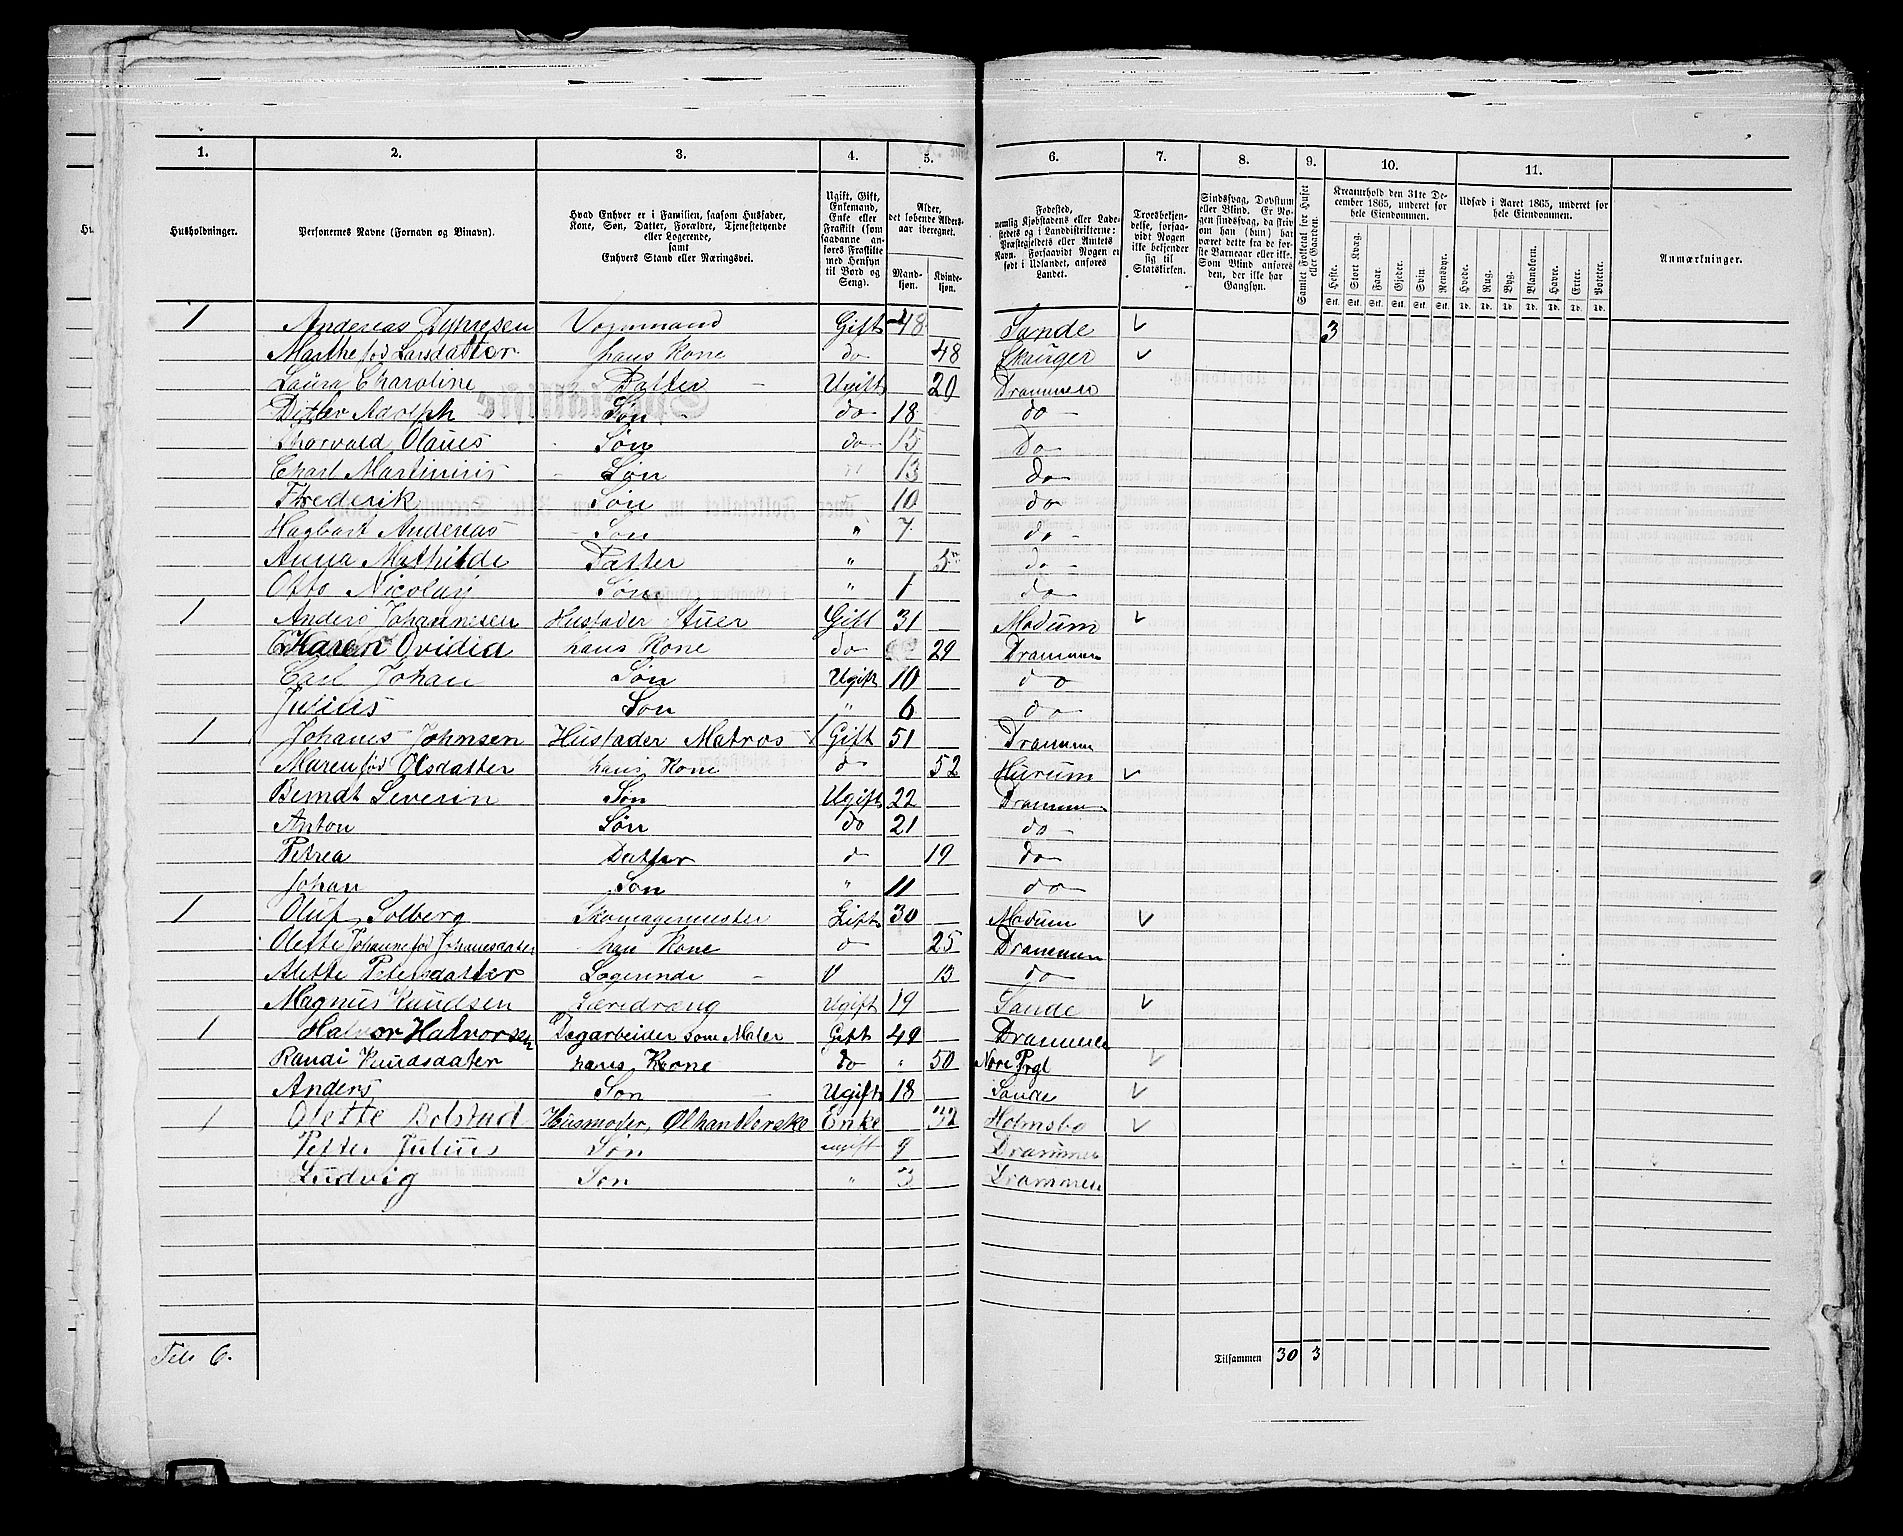 1. 2. 3. 4. 5. 6. 7. 8. 9. 10. 11.
Husholdninger. Personernes Navne (Fornavn og Binavn). Hvad Enhver er i Familien, saasom Husfader, Kone, Søn, Datter, Forældre, Tjenestetyende eller Logerende, samt Enhvers Stand eller Næringsvei. Ugift, Gift, Enkemand, Enke eller Fraskilt (som saadanne anføres Fraskilte med Hensyn til Bord og Seng). Alder, det løbende Alders-aar iberegnet. Mand-kjøn. Kvinde-kjøn. Fødested, nemlig Kjøbstadens eller Lade-stedets og i Landdistrikterne: Præstegjeldets eller Amtets Navn. Forsaavidt Nogen er født i Udlandet, anføres Landet. Troesbekjendelse, forsaavidt Nogen ikke bekjender sig til Statskirken. Sindssvag, Døvstum eller Blind. Er Nogen sindssvag, da skriv om han (hun) har været dette fra de første Barneaar eller ikke. Som Blind anføres den, der ikke har Gangsyn. Samlet Folketal for Huset eller Gaarden. Kreaturhold den 31te December 1865, underet for hele Eiendommen. Udsæd i Aaret 1865, underet for hele Eiendommen. Anmærkninger.
Heste. Stort Kvæg. Faar. Gjeder. Svin. Rensdyr. Hvede. Rug. Byg. Blandkorn. Havre. Erter. Poteter.
Stk. Stk. Stk. Stk. Stk. Stk. Td. Td. Td. Td. Td. Td. Td.
1 Andreas Vognmand Gift 48 Sande 3
Marthe fød Larsdatter hans Kone do 48 Skauger
Laura Charoline Datter Ugift 20 Drammen
Ditlev Adolph Søn do 18 do
Thorvald Olaues Søn do 15 Do
Charl Martinius Søn 13 do
Frederik Søn 10 do
Hagbart Andreas Søn " 7 do
Anna Mathilde Datter " 5 do
Otto Nicolay Søn " 1 do
1 Anders Johannesen Husfader Stuer Gift 31 Modum
Karen Ovidia hans Kone do 29 Drammen
Carl Johan Søn Ugift 10 do
Julius Søn " 6 do
1 Johanes Johnsen Husfader Matros Gift 51 Drammen
Maren fød Olsdatter hans Kone do 52 Hurum
Berndt Severin Søn Ugift 22 Drammen
Anton Søn do 21 do
Petrea Datter d 19 do
Johan Søn " 11 do
1 Oluf Solberg Skomagermester Gift 30 Modum
Olette Johanne fød Johanesdatter hans Kone d 25 Drammen
Alette Petersdatter Logerende U 13 do
Magnus Knudsen Læredræng Ugift 19 Sande
1 Halvor Halvorsen Dagarbeider som Maler Gift 49 Drammen
Randi Knudsdatter hans Kone do " 50 Nore Prgl
Anders Søn Ugift 18 Sande
1 Olette Bolstad Husmoder, Ølhandlerske Enke 32 Holmsbo
Petter Julius Søn ugift 9 Drammen
Ludvig Søn " 3 Drammen
6. Tilsammen 30 3